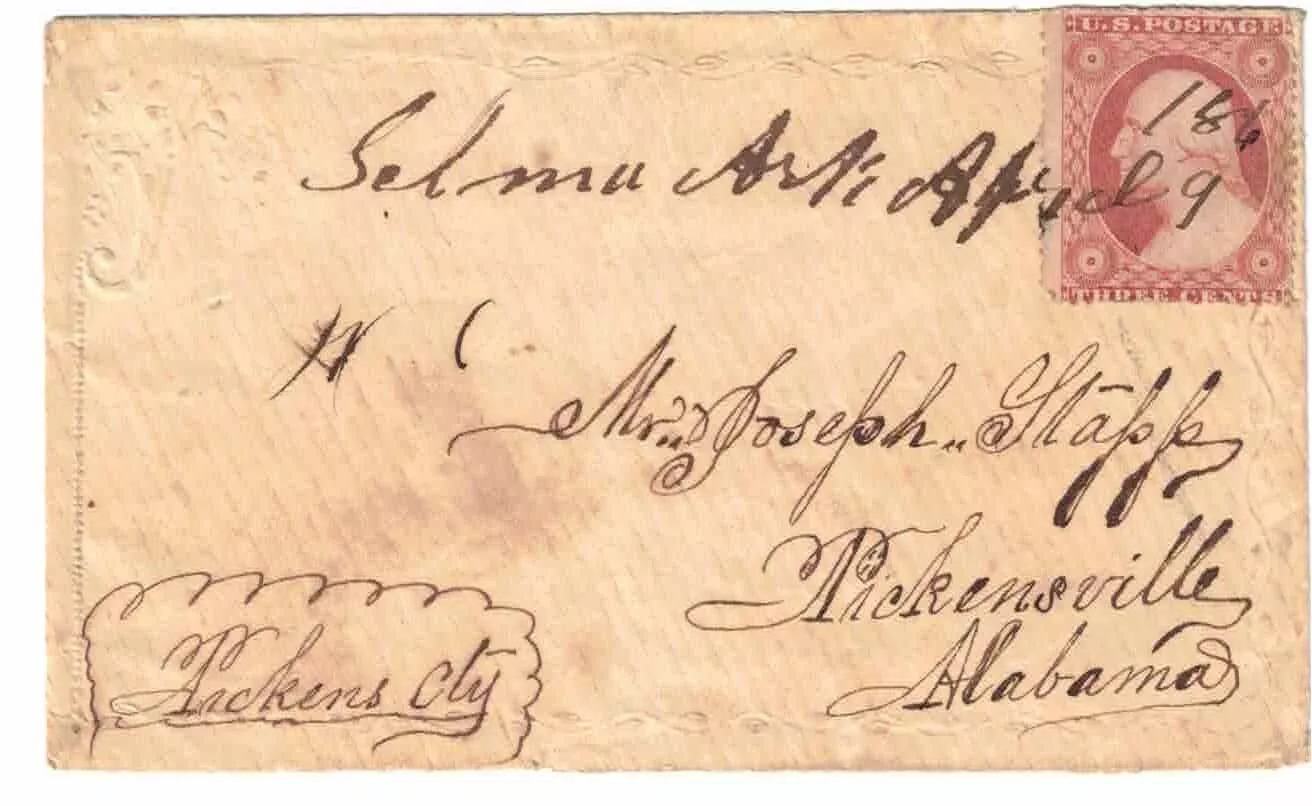 U.S. POSTAGE
Selma Ark April 9
186
THREE CENTS
Mr. Joseph Stapp
Pickensville
Alabama
Pickens Cty